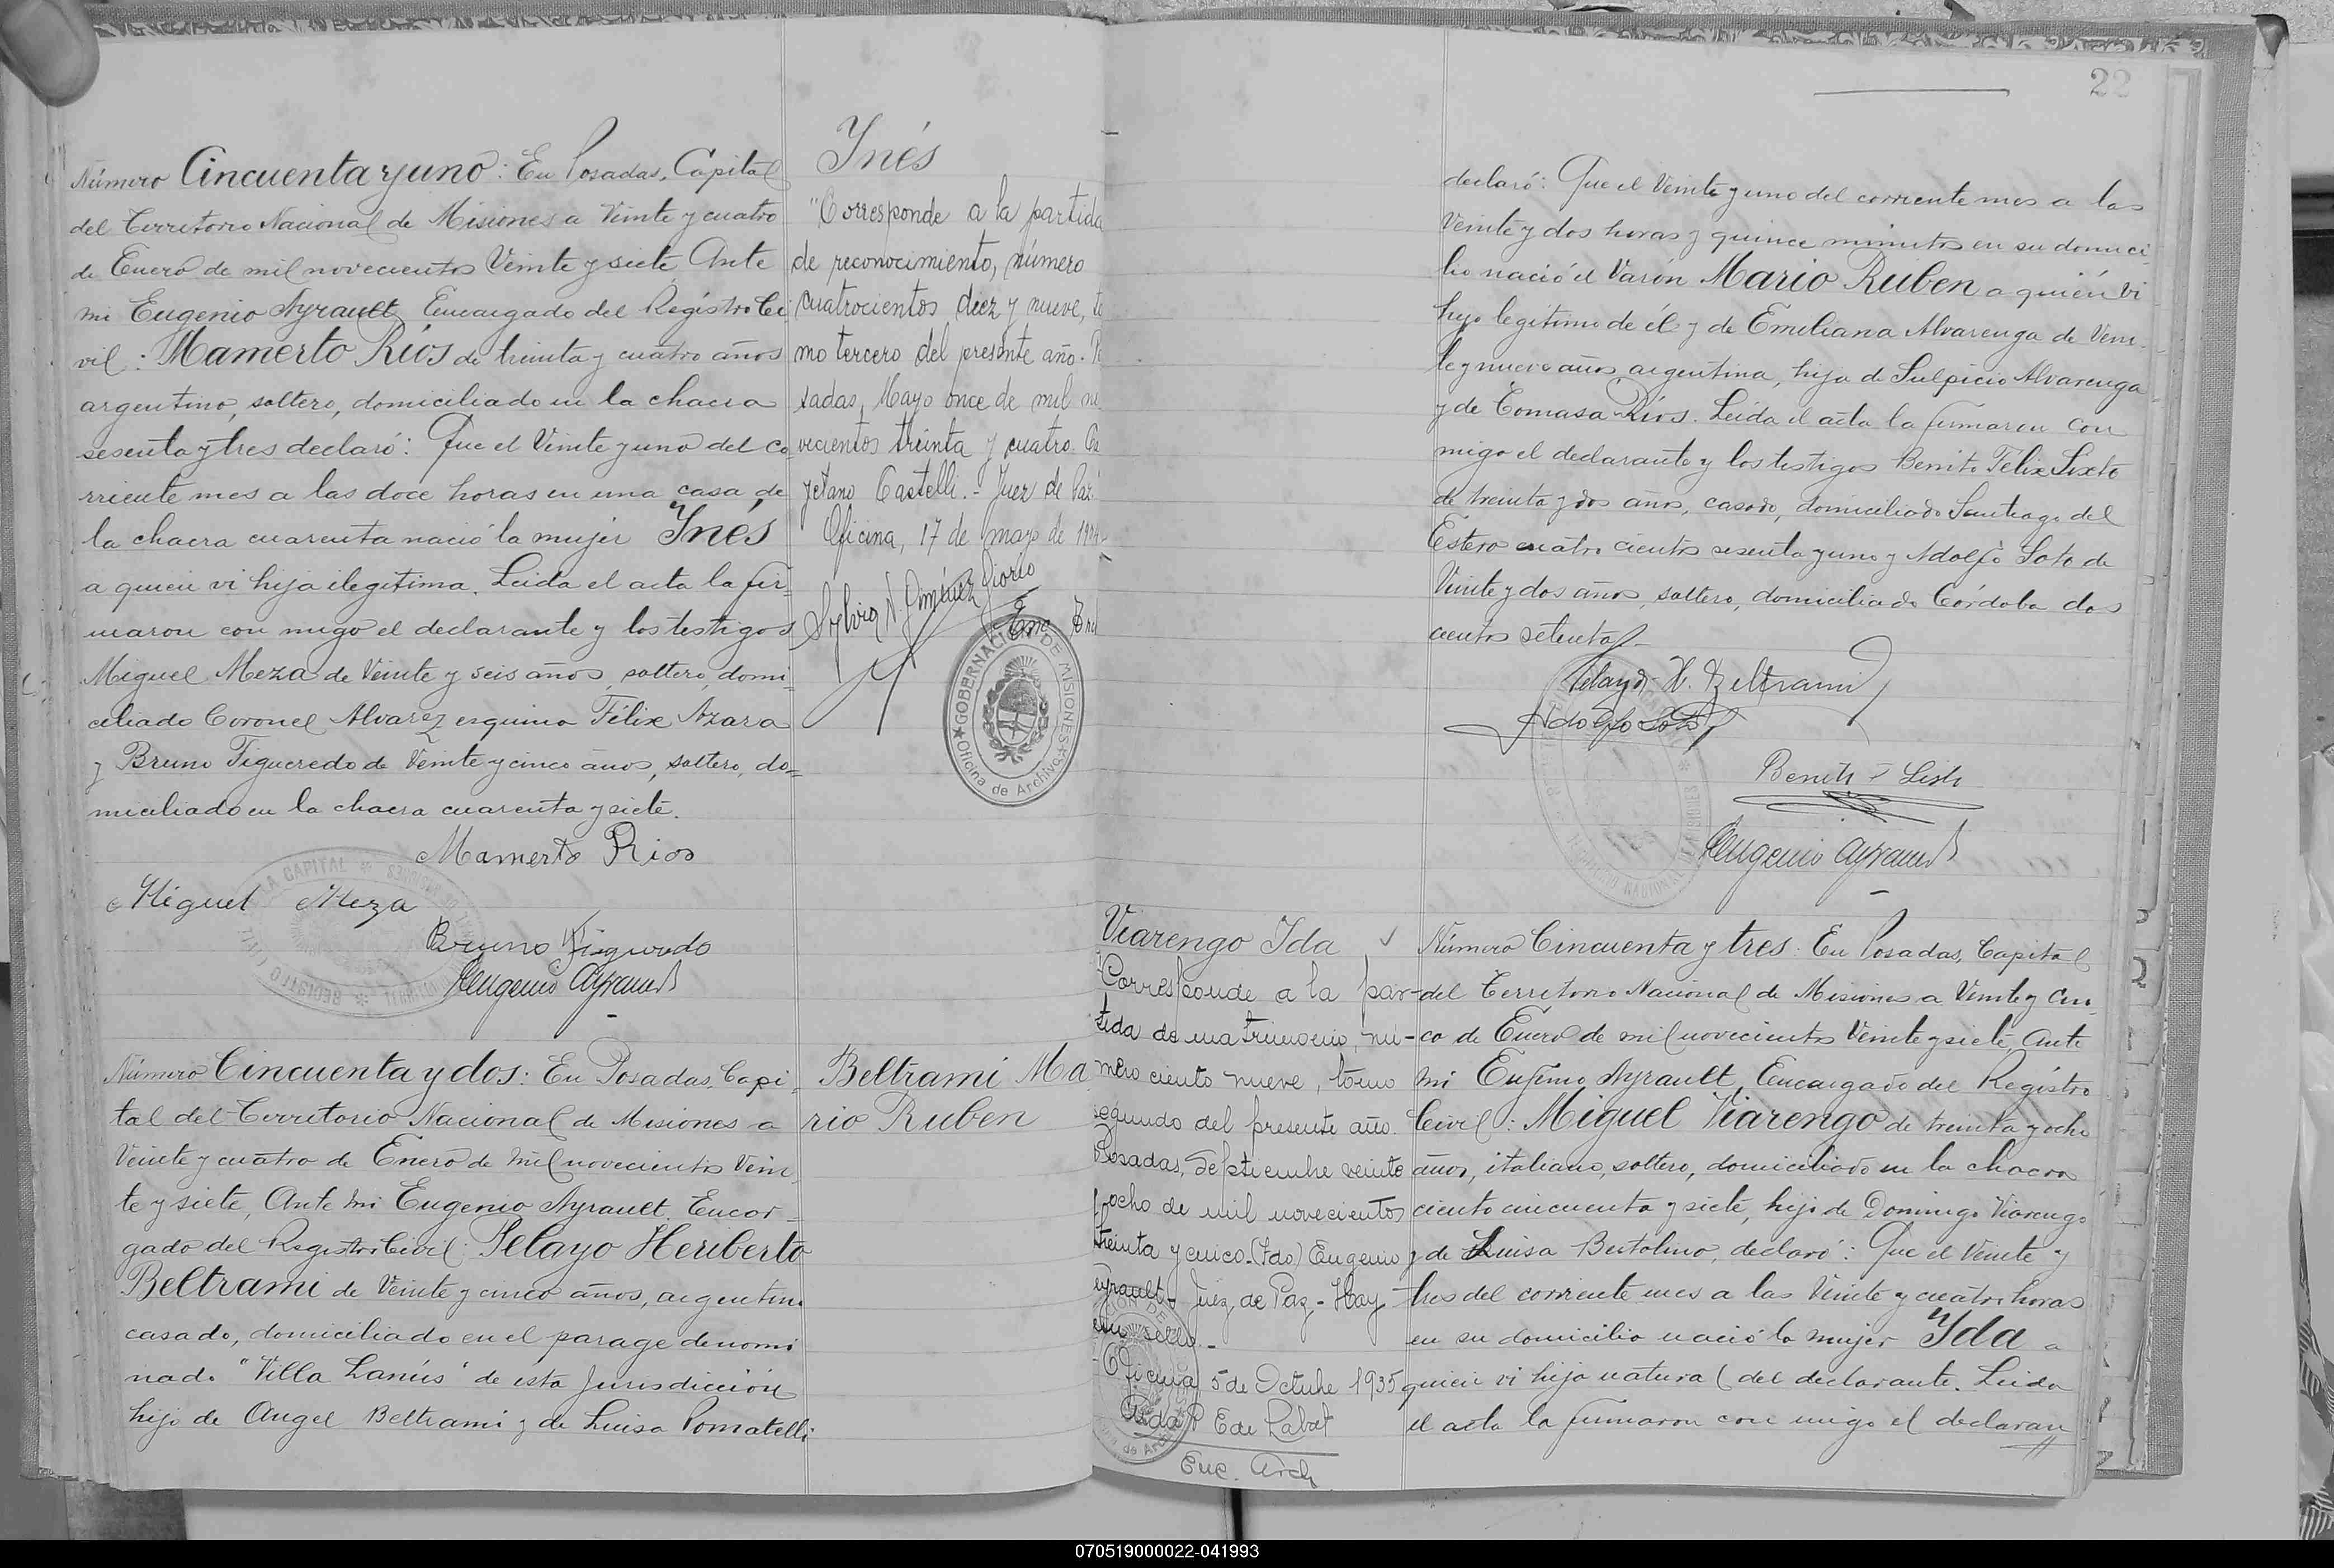 Número Cincuenta y uno: En Posadas, Capital
del Territorio Nacional de Misiones a Veinte y cuatro
de Enero de mil novecientos Veinte y siete, Ante
mi Eugenio Ayrault, Encargado del Registro Ci
vil: Mamerto Ríos de treinta y cuatro años
argentino, soltero, domiciliado en la chacra
sesenta y tres declaró: Que el Veinte y uno del co
rriente mes a las doce horas en una casa de
la chacra cuarenta nació la mujer Ynés
a quien vi hija ilegitima. Leida el acta la fir-
maron con migo el declarante y los testigos
Miguel Meza de Veinte y seis años, soltero, domi-
ciliado Coronel Alvarez esquina Félix Azara
y Bruno Figueredo de Veinte y cinco años, soltero, do=
miciliado en la chacra cuarenta y siete.
Mamerto Rios
Miguel Meza
Bruno Figueredo
Eugenio Ayrault
Ynés
"Corresponde a la partida
de reconocimiento, número
cuatrocientos diez y nueve, to
mo tercero del presente año. P
sadas, Mayo once de mil no
vecientos treinta y cuatro. Ca
yetano Castelli.- Juez de Paz.
Oficina, 17 de mayo de 1934
Sylvia N. Giménez Giorio
Enc
GOBERNACIÓN DE MISIONES
Oficina de Archivo
Número Cincuenta y dos: En Posadas, Capi
tal del Territorio Nacional de Misiones a
Veinte y cuatro de Enero de mil novecientos Vein
te y siete, Ante mi Eugenio Ayrault, Encar-
gado del Registro Civil: Pelayo Heriberto
Beltrami de Veinte y cinco años, argentino
casado, domiciliado en el parage denomi
nado "Villa Lanús" de esta Jurisdicción
hijo de Angel Beltrami y de Luisa Pomatelli
Beltrami Ma
rio Ruben
22
declaró: Que el Veinte y uno del corriente mes a las
Veinte y dos horas y quince minutos en su domici
lio nació el Varón Mario Ruben a quién vi
hijo legítimo de él y de Emiliana Alvarenga de Vein-
te y nueve años, argentina, hija de Sulpicio Alvarenga
y de Tomasa Ríos. Leída el acta la firmaron con
migo el declarante y los testigos Benito Felix Sixto
de treinta y dos años, casado, domiciliado Santiago del
Estero cuatro cientos sesenta y uno y Adolfo Soto de
Veinte y dos años, soltero, domiciliado Córdoba dos
cientos setenta.
Pelayo H. Beltrami
Adolfo Soto
Benito F Sixto
Eugenio Ayrault
Viarengo Ida
Corresponde a la par-
tida de matrimonio, nú-
mero ciento nueve, tomo
segundo del presente año.
Posadas, Septiembre veinte
y ocho de mil novecientos
treinta y cinco.- (Fdo) Eugenio
Ayrault- Juez de Paz.- Hay
un sello.-
Oficina 5 de Octubre 1935
Aida P E de Labat
Enc. Arch
Número Cincuenta y tres: En Posadas, Capital
del Territorio Nacional de Misiones a Veinte y cin
co de Enero de mil novecientos Veinte y siete, Ante
mi Eugenio Ayrault, Encargado del Registro
Civil: Miguel Viarengo de treinta y ocho
años, italiano, soltero, domiciliado en la chacra
ciento cincuenta y siete, hijo de Domingo Viarengo
y de Luisa Bertolino, declaró: Que el Veinte y
tres del corriente mes a las Veinte y cuatro horas
en su domicilio nació la mujer Yda a
quien vi hija natural del declarante. Leida
el acta la firmaron con migo el declaran
070519000022-041993